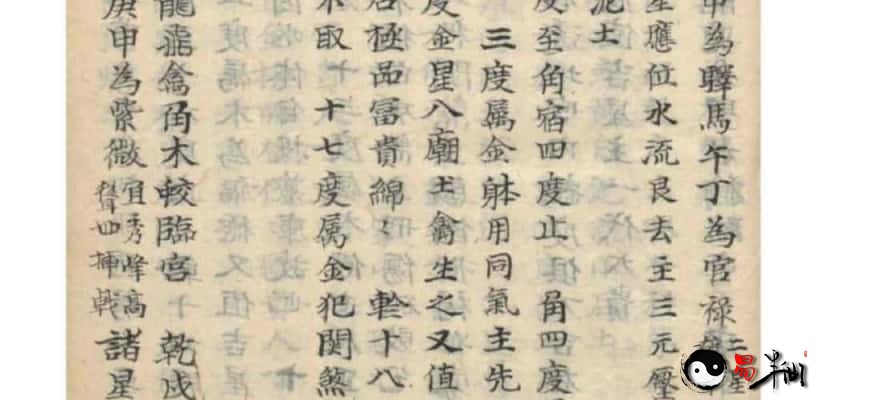 申為驛馬午丁為官祿二
星應位水流艮去主三元壓
泥土
度至角宿四度止 角四度
三度属金躰用同氣主先
度金星八廟主禽生之又值
居極品冨貴綿〻 軫十八
不取 十七度属金犯関煞
龍飛禽角木較臨宫 乾戌
庚申為紫微宜秀峰高聳四揷戟諸星
易半仙